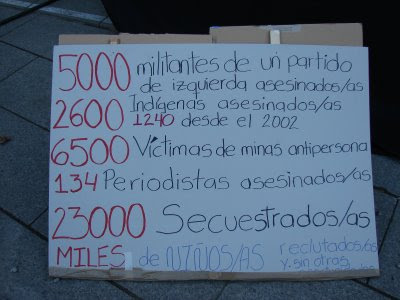 5000 militantes de un partido
de izquierda asesinados/as
2600 Indígenas asesinados/as
1240 desde el 2002
6500 Víctimas de minas antipersona
134 Periodistas asesinados/as
23000 Secuestrados/as
MILES de NIÑOS/AS reclutados/as
y sin otras